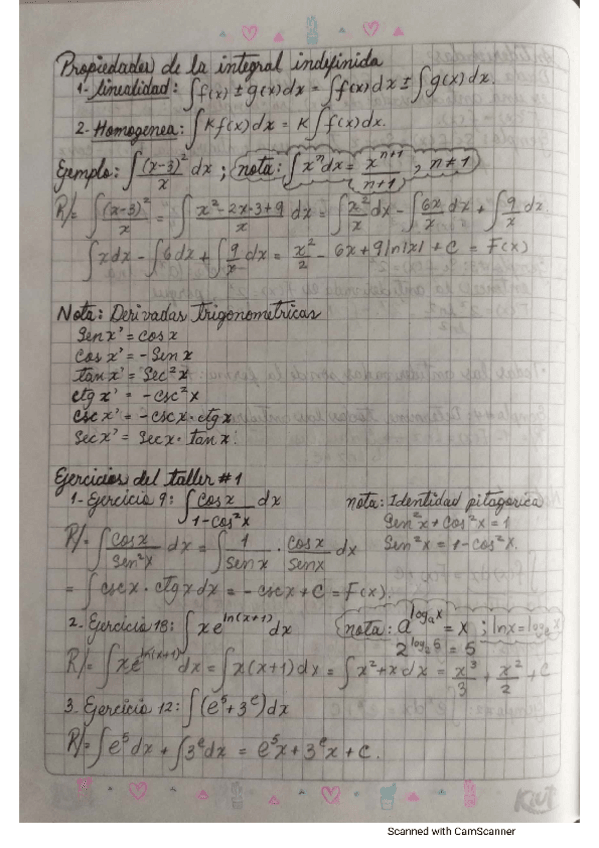 Propiedades de la integral indefinida
1- linealidad: ∫f(x) ± g(x)dx = ∫f(x)dx ± ∫g(x)dx.
2- Homogenea: ∫Kf(x)dx = K∫f(x)dx.
Ejemplo: ∫(x-3)²/x dx ; nota: ∫xⁿdx = xⁿ⁺¹/n+1, n≠1
R/= ∫(x-3)²/x = ∫x²-2x·3+9/x dx = ∫x²/x dx - ∫6x/x dx + ∫9/x dx.
∫xdx - ∫6dx + ∫9/x dx = x²/2 - 6x+9ln|x| + C = F(x)
Nota: Derivadas trigonometricas
Sen x' = cos x
Cos x' = - Sen x
tan x' = Sec²x
ctg x' = -csc²x
csc x' = -csc x · ctg x
Secx' = Secx · tan x
Ejercicios del taller #1
1- Ejercicio 9: ∫cosx/1-cos²x dx nota: Identidad pitagorica
Sen²x + Cos²x = 1
R/= ∫cosx/Sen²x dx = ∫1/Sen x · cosx/senx dx Sen²x = 1-cos²x.
= ∫cscx · ctgx dx = -cscx + C = F(x).
2- Ejercicio 18: ∫xe^ln(x+1) dx nota: a^logₐx = x ; lnx = logₑx
2^log₂5 = 5
R/= ∫xe^ln(x+1) dx = ∫x(x+1)dx = ∫x²+x dx = x³/3 + x²/2 + C
3. Ejercicio 12: ∫(e⁵+3ᵉ)dx
R/= ∫e⁵dx + ∫3ᵉdx = e⁵x+3ᵉx + C.
Kiut
Scanned with CamScanner